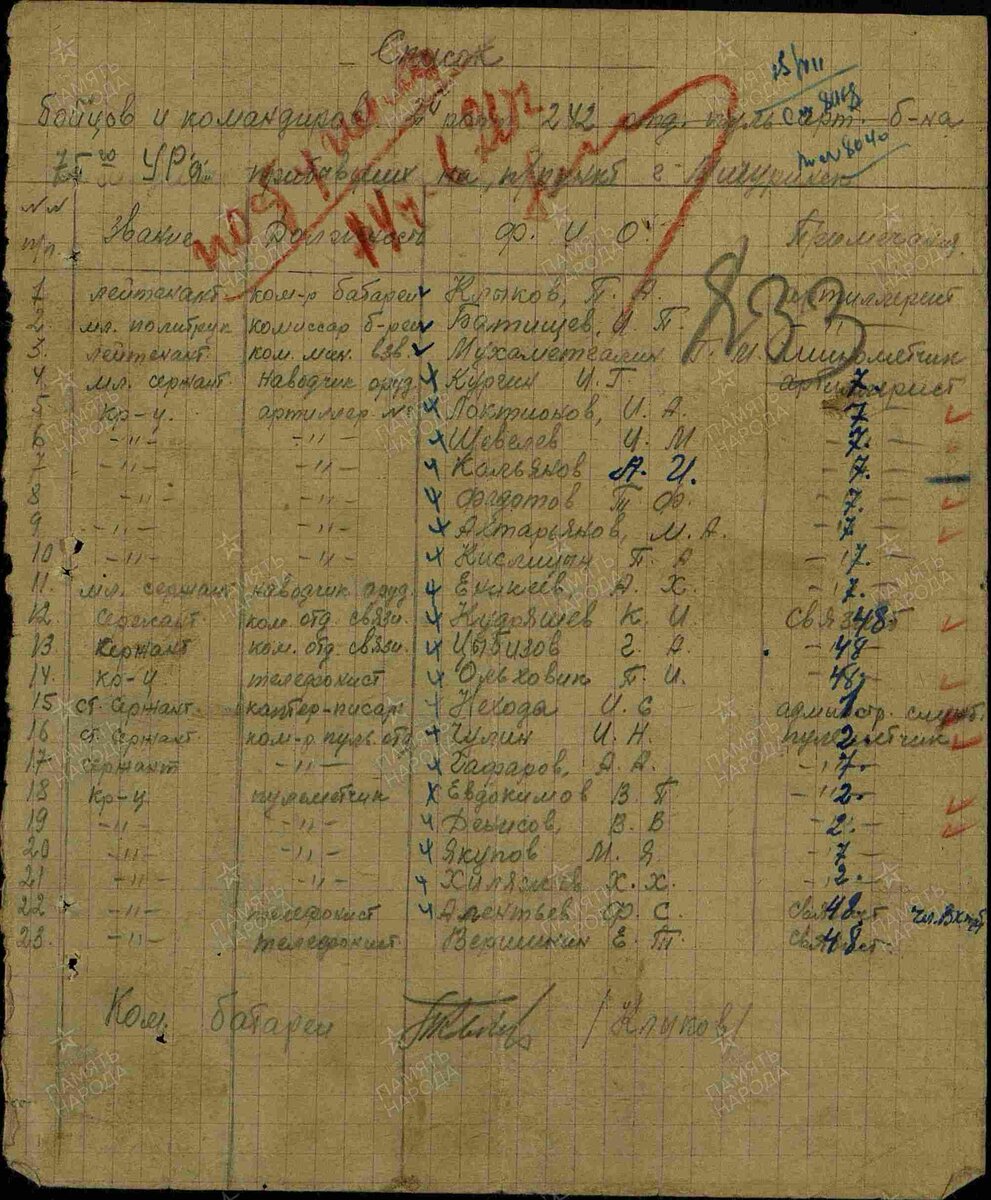 Список
15/VIII
бойцов и командиров 3й 242 отд. пуль. арт. б-на
75го УРа прибывших на, п/пункт г. Мичуринск
14/
833
NN п/п. Звание Должность Ф. И. О. Примечания
1 лейтенант ком-р батареи Клыков, П. А. артиллерист
2. мл. политрук комиссар б-реи Батищев, И. П. -"-
3. лейтенант ком. мин. взв. Мухаметгалин Г. И. минометчик
4 мл. сержант наводчик оруд. Кургин И. Г. артиллерист 7.
5 кр-ц. артиллер. Локтионов, И. А. 7
6 -"- -"- Шевелев И. М 7.
7 -"- -"- Кальянов А. И. 7.
8 -"- -"- Федотов Т. Ф. 7.
9 -"- -"- Ахтарьянов, М. А. 7
10 -"- -"- Кислицин П. А 7.
11. мл. сержант наводчик оруд. Еникеев, А. Х. 7.
12 Сержант ком. отд. связи. Кудряшев К. И связист 48.
13 Сержант ком. отд. связи. Цыбизов Г. А. 48
14. кр-ц телефонист Ольховик П. И. 48.
15 ст. Сержант. каптер-писар. Нехода И. С админстр. служб. 1
16 ст. Сержант. ком-р пуль. отд Чулин И. Н. пулеметчик 2.
17 сержант -"- Гафаров, А. А. 7.
18 кр-ц. пулеметчик Евдокимов В. П 2.
19 -"- -"- Денисов, В. В 2.
20 -"- -"- Якупов М. Я. 7
21 -"- -"- Х. Х. 2.
22 -"- телефонист Алентьев Ф. С. связист 48
23. -"- телефонист Вершинин Е. Т. связист. 48
Ком. батареи /Клыков/